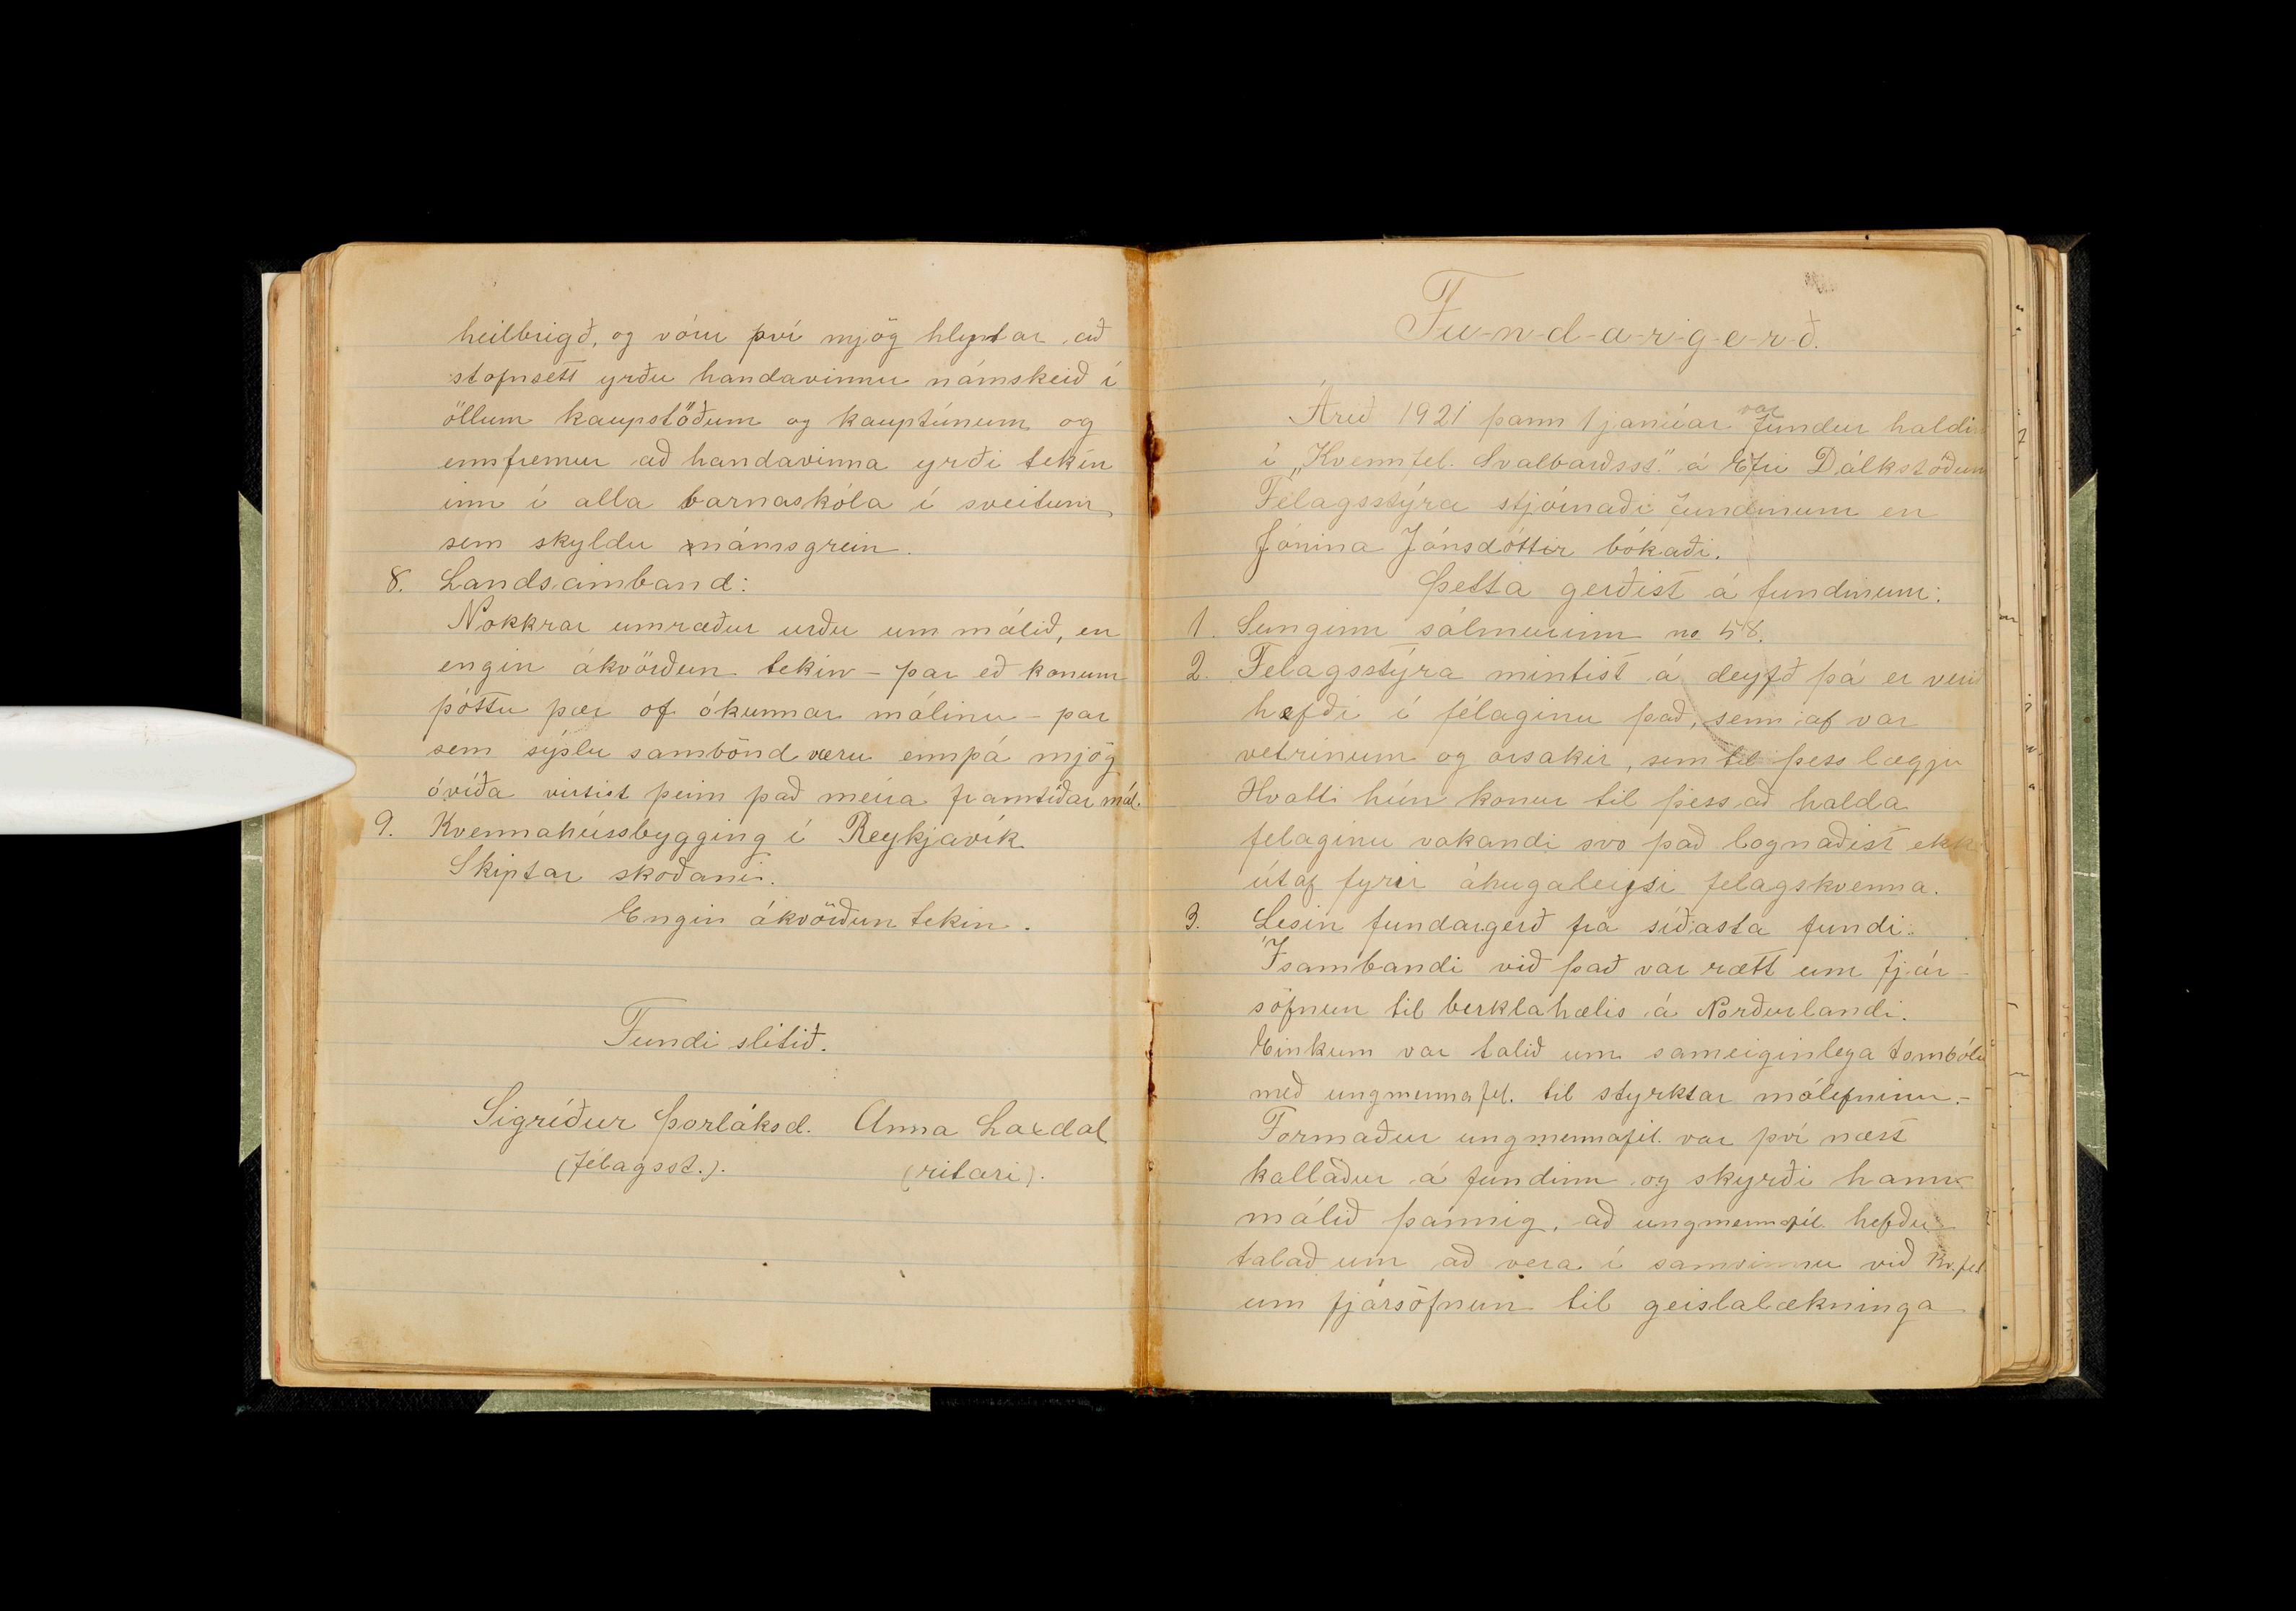 heilbrigð, og vóru því mjög hlyntar að
stofnsett yrðu handavinnu námskeið í
öllum kaupstöðum og kauptúnum og
ennfremur að handavinna yrði tekin
inn í alla barnaskóla í sveitum
sem skyldu námsgrein.
8. Landsamband:
Nokkrar umræður urðu um málið, en
engin ákvörðun tekin - þar eð konum
þóttu þær of ókunnar málinu - þar
sem sýslu sambönd væru ennþá mjög
óvíða virtist þeim það meira framtíðar mál.
9. Kvennahússbygging í Reykjavík
Skiptar skoðanir.
Engin ákvörðun tekin.
Fundi slitið.
Sigríður Þorláksd. Anna Laxdal
(félagsst.). (ritari).
Fu-n-d-a-r-g-e-r-ð.
Árið 1921 þann 1 janúar var fundur haldin
í „Kvennfel. Svalbarðsst." á Efri Dálkstöðum
Félagsstýra stjórnaði fundinum en
Jónina Jónsdóttir bókaði.
Þetta gerðist á fundinum:
1. Sunginn sálmurinn no 548.
2. Felagsstýra mintist á deyfð þá er verið
hefði í félaginu það, sem af var
vetrinum og orsakir, sem til þess lægju
Hvatti hún konur til þess að halda
felaginu vakandi svo það lognaðist ekki
útaf fyrir áhugaleysi felagskvenna.
3. Lesin fundargerð frá síðasta fundi.
Í sambandi við það var rætt um fjár-
söfnun til berklahælis á Norðurlandi.
Einkum var talið um sameiginlega tombólu
með ungmennafel. til styrktar málefninu.-
Formaður ungmennafél. var því næst
kallaður á fundinn og skyrði hann
málið þannig, að ungmennafél hefðu
talað um að vera í samvinnu við Kv.fel.
um fjársöfnun til geislalækninga